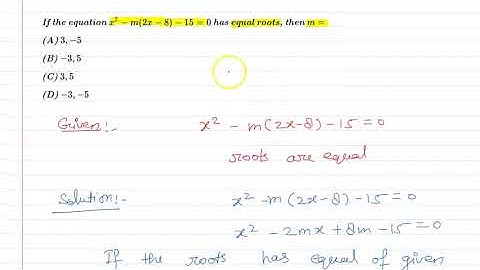 If the equation x² − m(2x − 8) − 15 = 0 has equal roots, then m =
(A) 3, −5
(B) −3, 5
(C) 3, 5
(D) −3, −5
Given:- x² - m(2x-8)-15=0
roots are equal
Solution:- x² - m(2x-8)-15=0
x² - 2mx + 8m -15=0
If the roots has equal of given